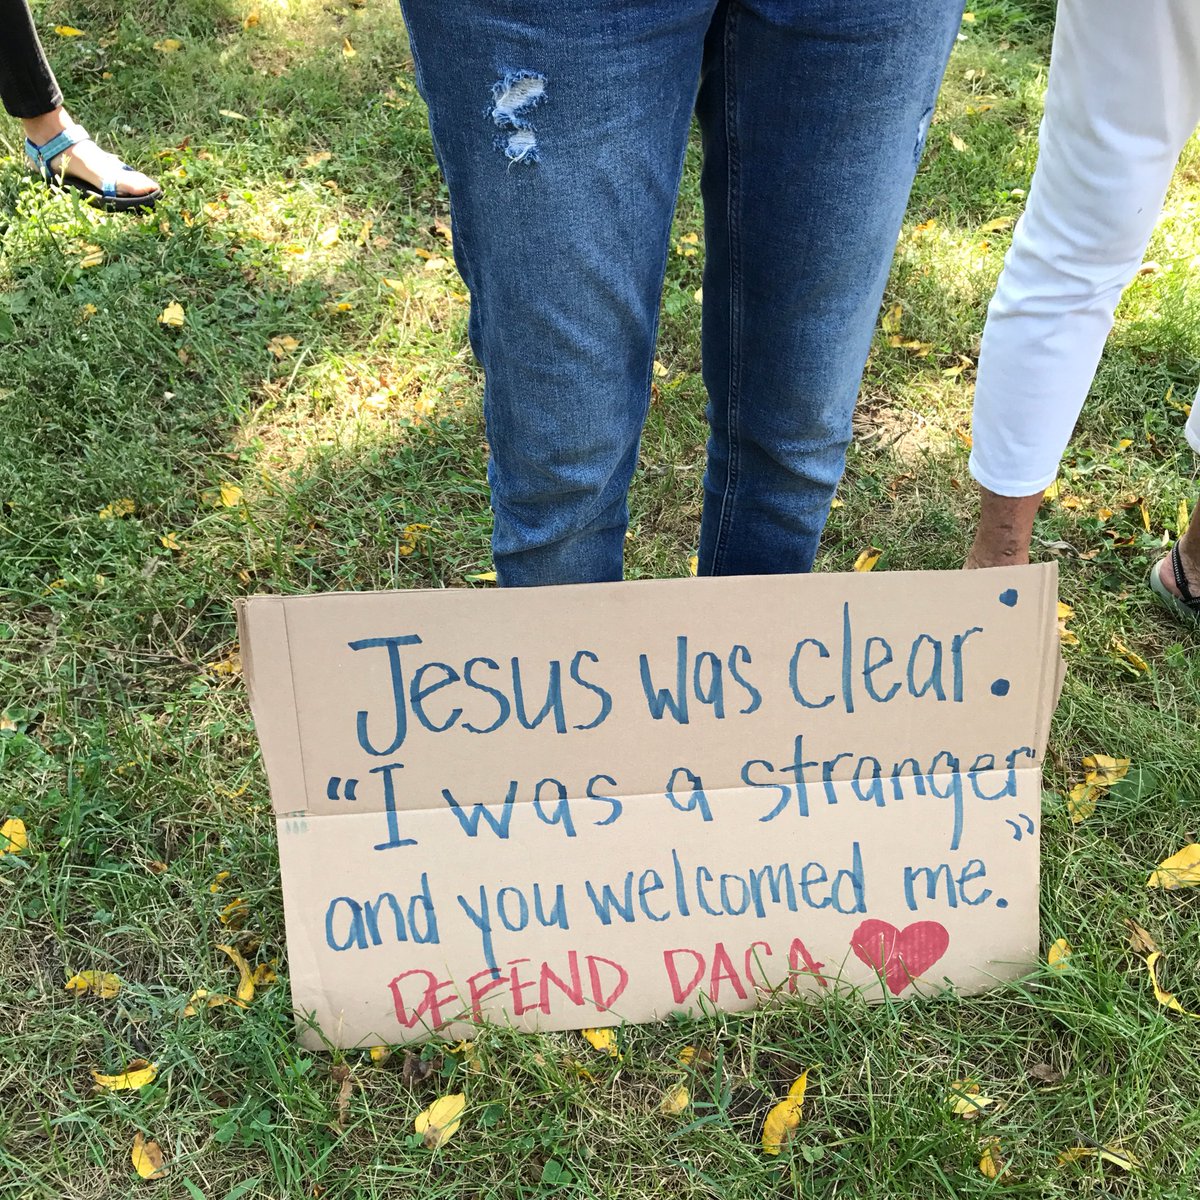 Jesus was clear:
"I was a stranger"
and you welcomed me."
DEFEND DACA